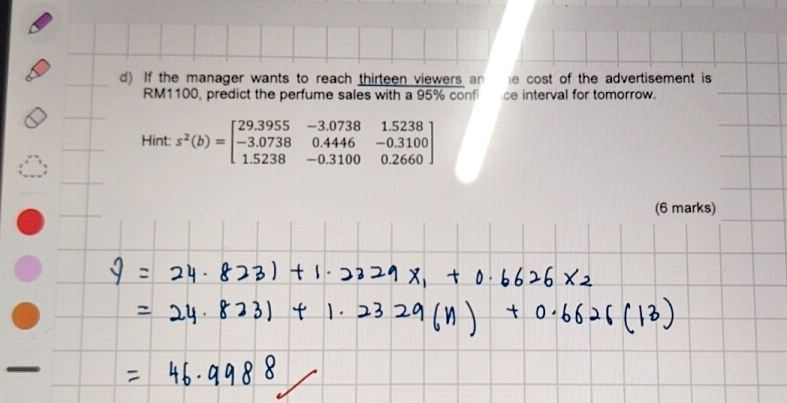 d) If the manager wants to reach thirteen viewers an he cost of the advertisement is
RM1100, predict the perfume sales with a 95% conf ce interval for tomorrow.
Hint: s²(b) = [29.3955 −3.0738 1.5238
−3.0738 0.4446 −0.3100
1.5238 −0.3100 0.2660]
(6 marks)
ŷ = 24.8231 + 1.2329 x₁ + 0.6626 x₂
= 24.8231 + 1.2329 (11) + 0.6626 (13)
= 46.9988 ✓